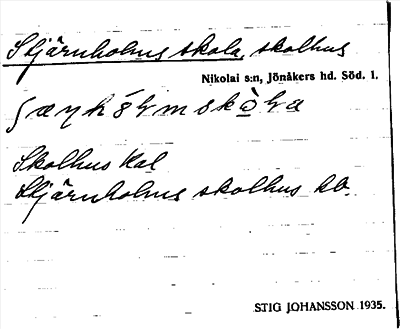 Stjärnholms skola, skolhus
Nikolai s:n, Jönåkers hd. Söd. 1.
Skolhus Kal
Stjärnholms skolhus
STIG JOHANSSON 1935.